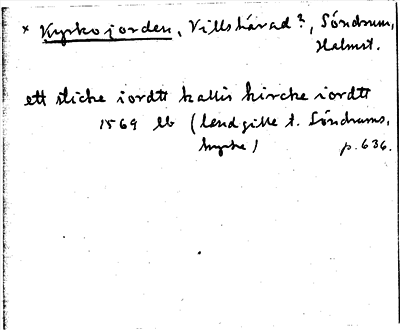 × Kyrkojorden, Villshärad?, Söndrum,
Halmst.
ett sticke iordtt kallis kircke iordtt
1569 lb (landgille t. Söndrums,
kyrka) p. 636.